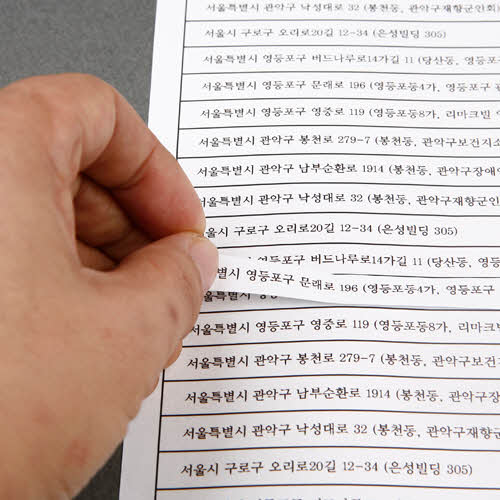 서울특별시 관악구 낙성대로 32 (봉천동, 관악구재향군인회)
서울시 구로구 오리로20길 12-34 (은성빌딩 305)
서울특별시 영등포구 버드나루로14가길 11 (당산동, 영등포구
서울특별시 영등포구 문래로 196 (영등포동4가, 영등포구
서울특별시 영등포구 영중로 119 (영등포동8가, 리마크빌
서울특별시 관악구 봉천로 279-7 (봉천동, 관악구보건지소
서울특별시 관악구 남부순환로 1914 (봉천동, 관악구장애인
서울특별시 관악구 낙성대로 32 (봉천동, 관악구재향군인
서울시 구로구 오리로20길 12-34 (은성빌딩 305)
영등포구 버드나루로14가길 11 (당산동, 영등
별시 영등포구 문래로 196 (영등포동4가, 영등포구
서울특별시 영등포구 영중로 119 (영등포동8가, 리마크
서울특별시 관악구 봉천로 279-7 (봉천동, 관악구보건지
서울특별시 관악구 남부순환로 1914 (봉천동, 관악구장
서울특별시 관악구 낙성대로 32 (봉천동, 관악구재향군
서울시 구로구 오리로20길 12-34 (은성빌딩 305)